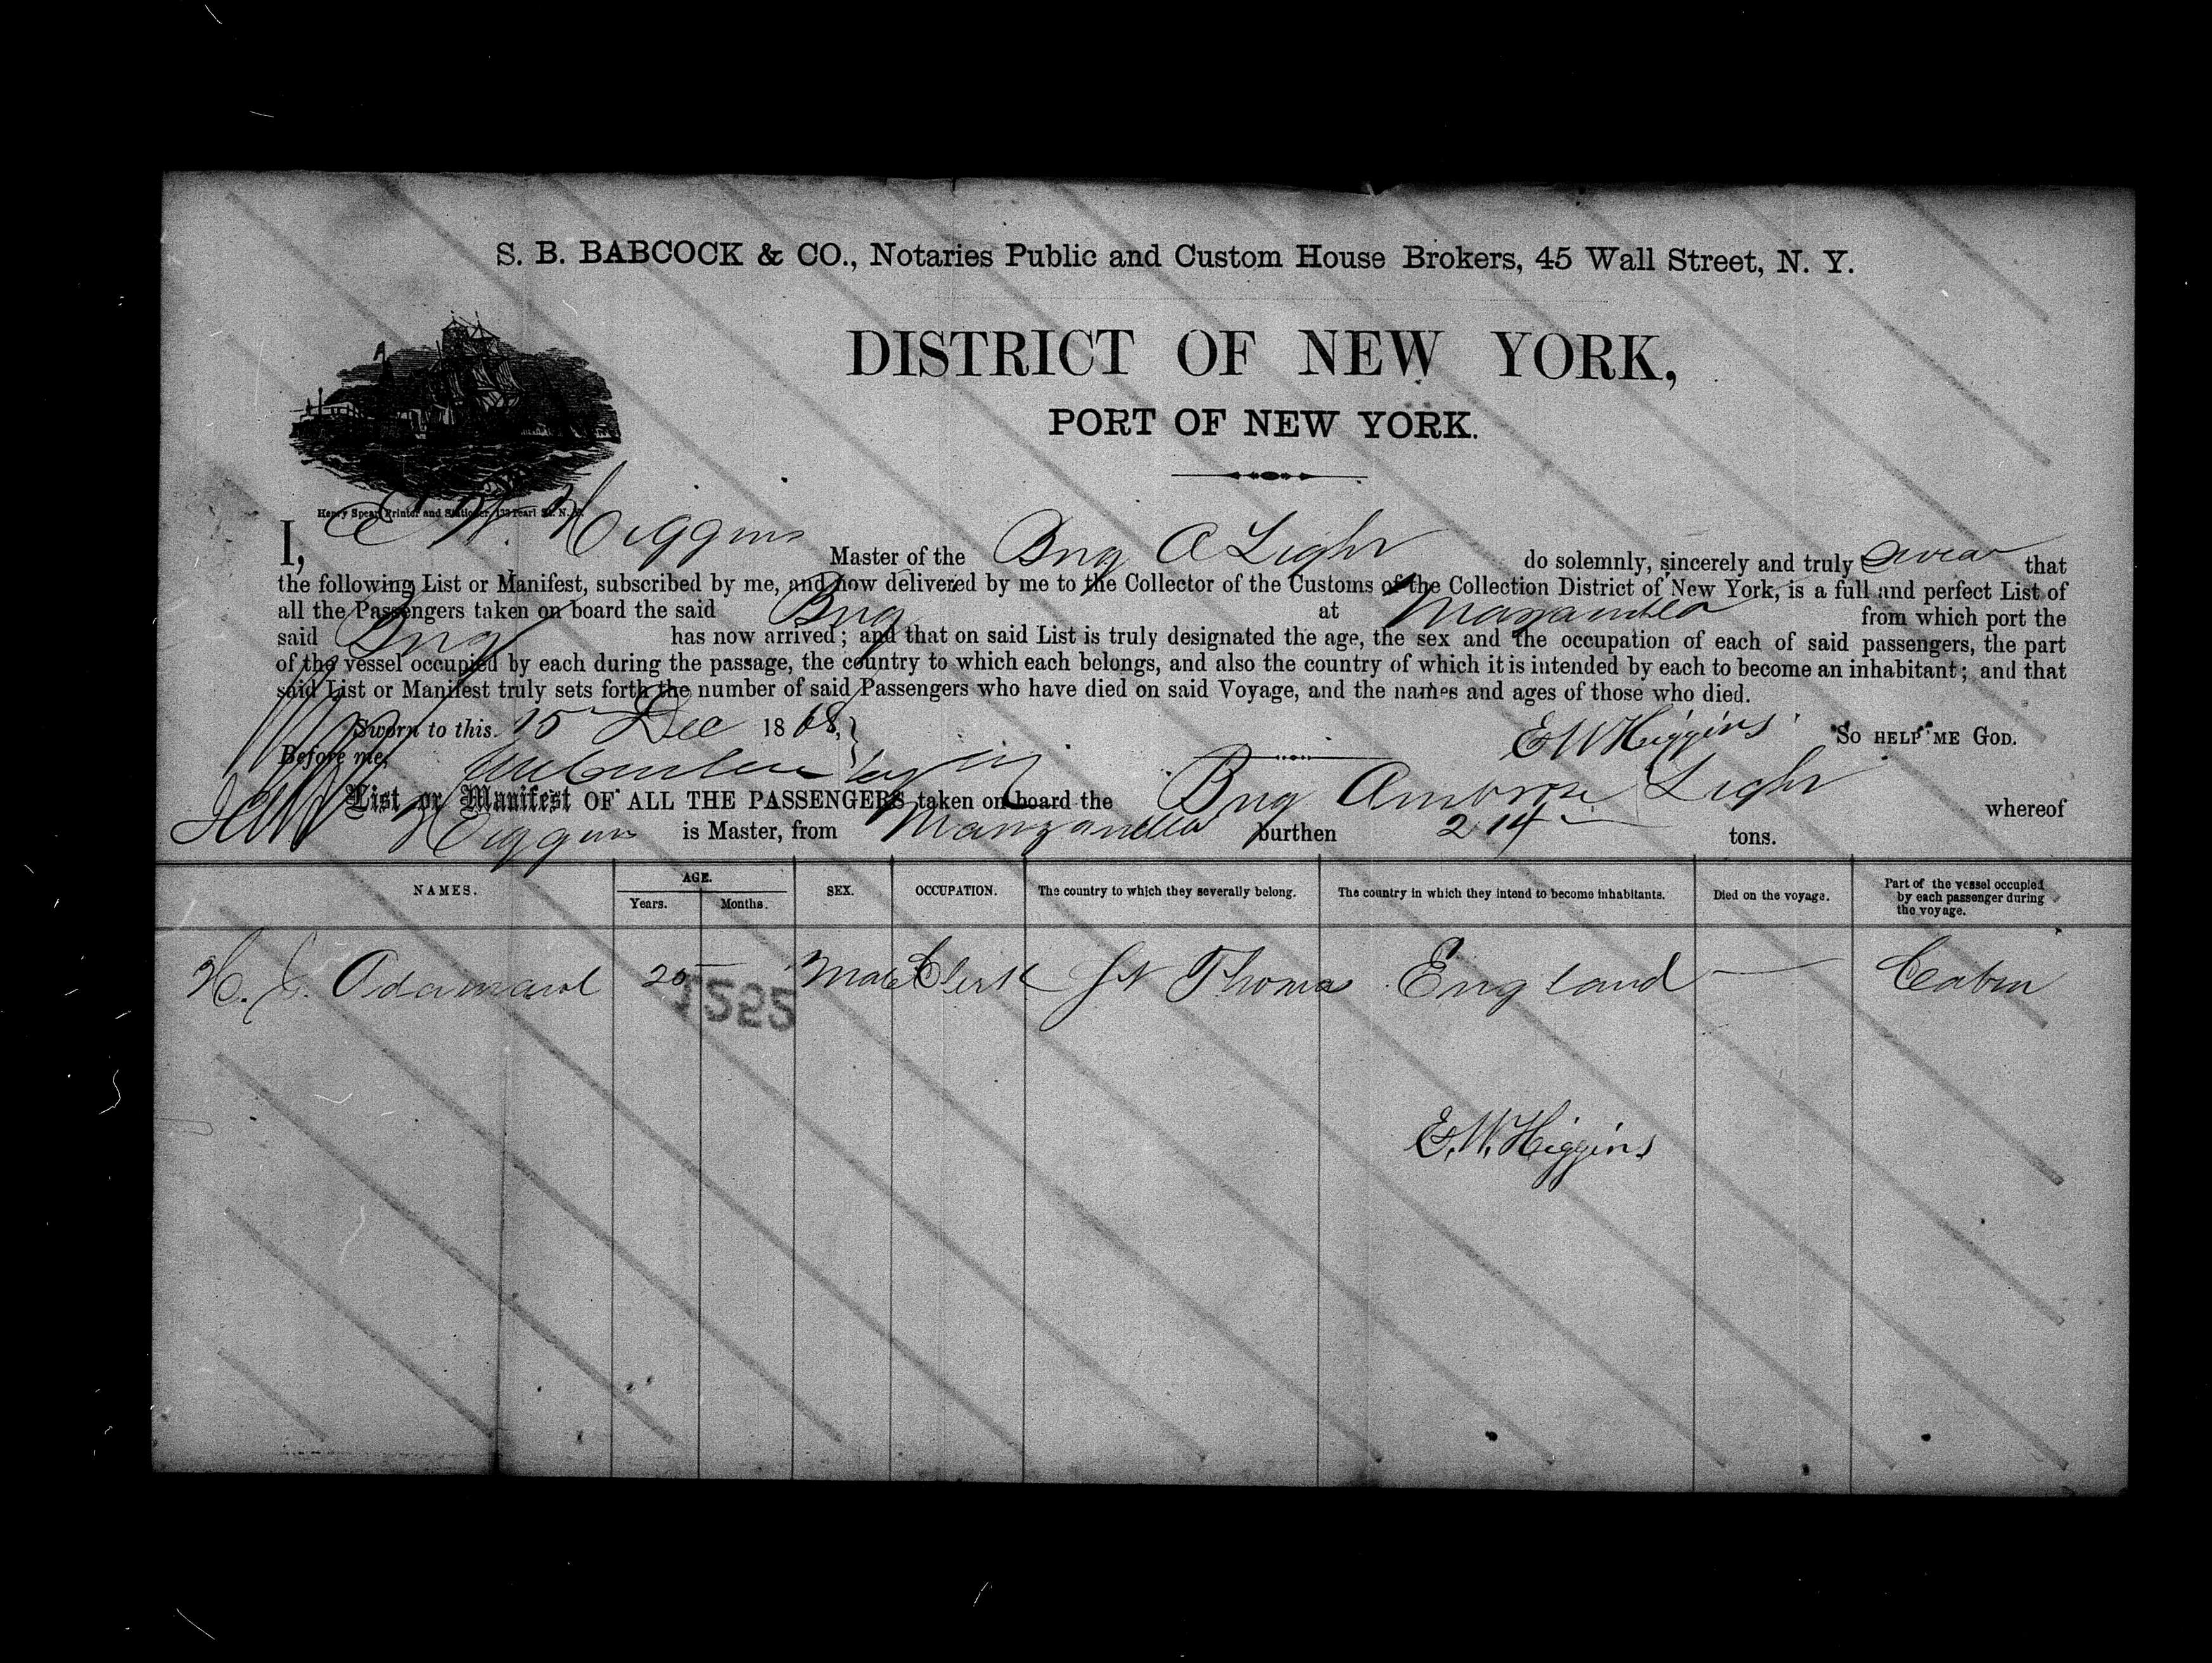 S. B. BABCOCK & CO., Notaries Public and Custom House Brokers, 45 Wall Street, N. Y.
DISTRICT OF NEW YORK,
PORT OF NEW YORK.
Henry Spear, Printer and Stationer, 133 Pearl St. N. Y.
I, E. W. Higgins Master of the Brig A Light do solemnly, sincerely and truly swear that
the following List or Manifest, subscribed by me, and now delivered by me to the Collector of the Customs of the Collection District of New York, is a full and perfect List of
all the Passengers taken on board the said Brig at Manzanilla from which port the
said Brig has now arrived; and that on said List is truly designated the age, the sex and the occupation of each of said passengers, the part
of the vessel occupied by each during the passage, the country to which each belongs, and also the country of which it is intended by each to become an inhabitant; and that
said List or Manifest truly sets forth the number of said Passengers who have died on said Voyage, and the names and ages of those who died.
Sworn to this 15 Dec 1868, E W Higgins So HELP ME GOD.
Before me,
List or Manifest OF ALL THE PASSENGERS taken on board the Brig Ambrose Light whereof
Higgins is Master, from Manzanilla burthen 214 tons.
NAMES. AGE. SEX. OCCUPATION. The country to which they severally belong. The country in which they intend to become inhabitants. Died on the voyage. Part of the vessel occupied by each passenger during the voyage.
Years. Months.
25 Male Clerk St Thomas England — Cabin
1525
E. W. Higgins